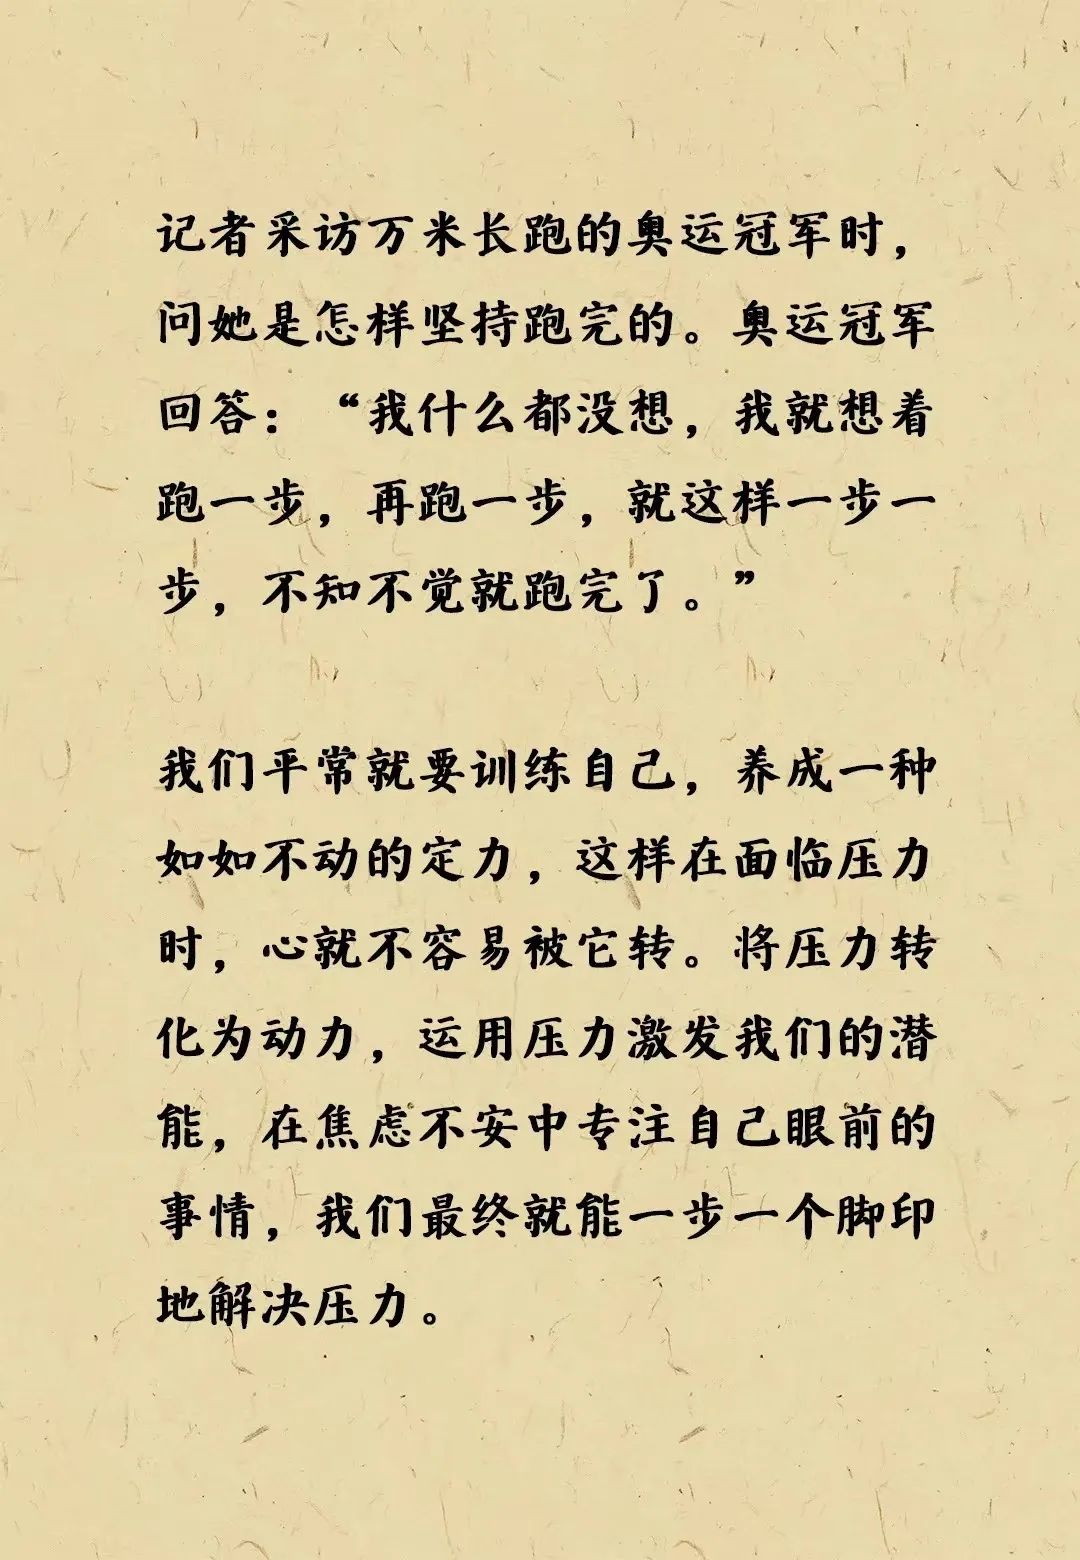 记者采访万米长跑的奥运冠军时，
问她是怎样坚持跑完的。奥运冠军
回答：“我什么都没想，我就想着
跑一步，再跑一步，就这样一步一
步，不知不觉就跑完了。”
我们平常就要训练自己，养成一种
如如不动的定力，这样在面临压力
时，心就不容易被它转。将压力转
化为动力，运用压力激发我们的潜
能，在焦虑不安中专注自己眼前的
事情，我们最终就能一步一个脚印
地解决压力。